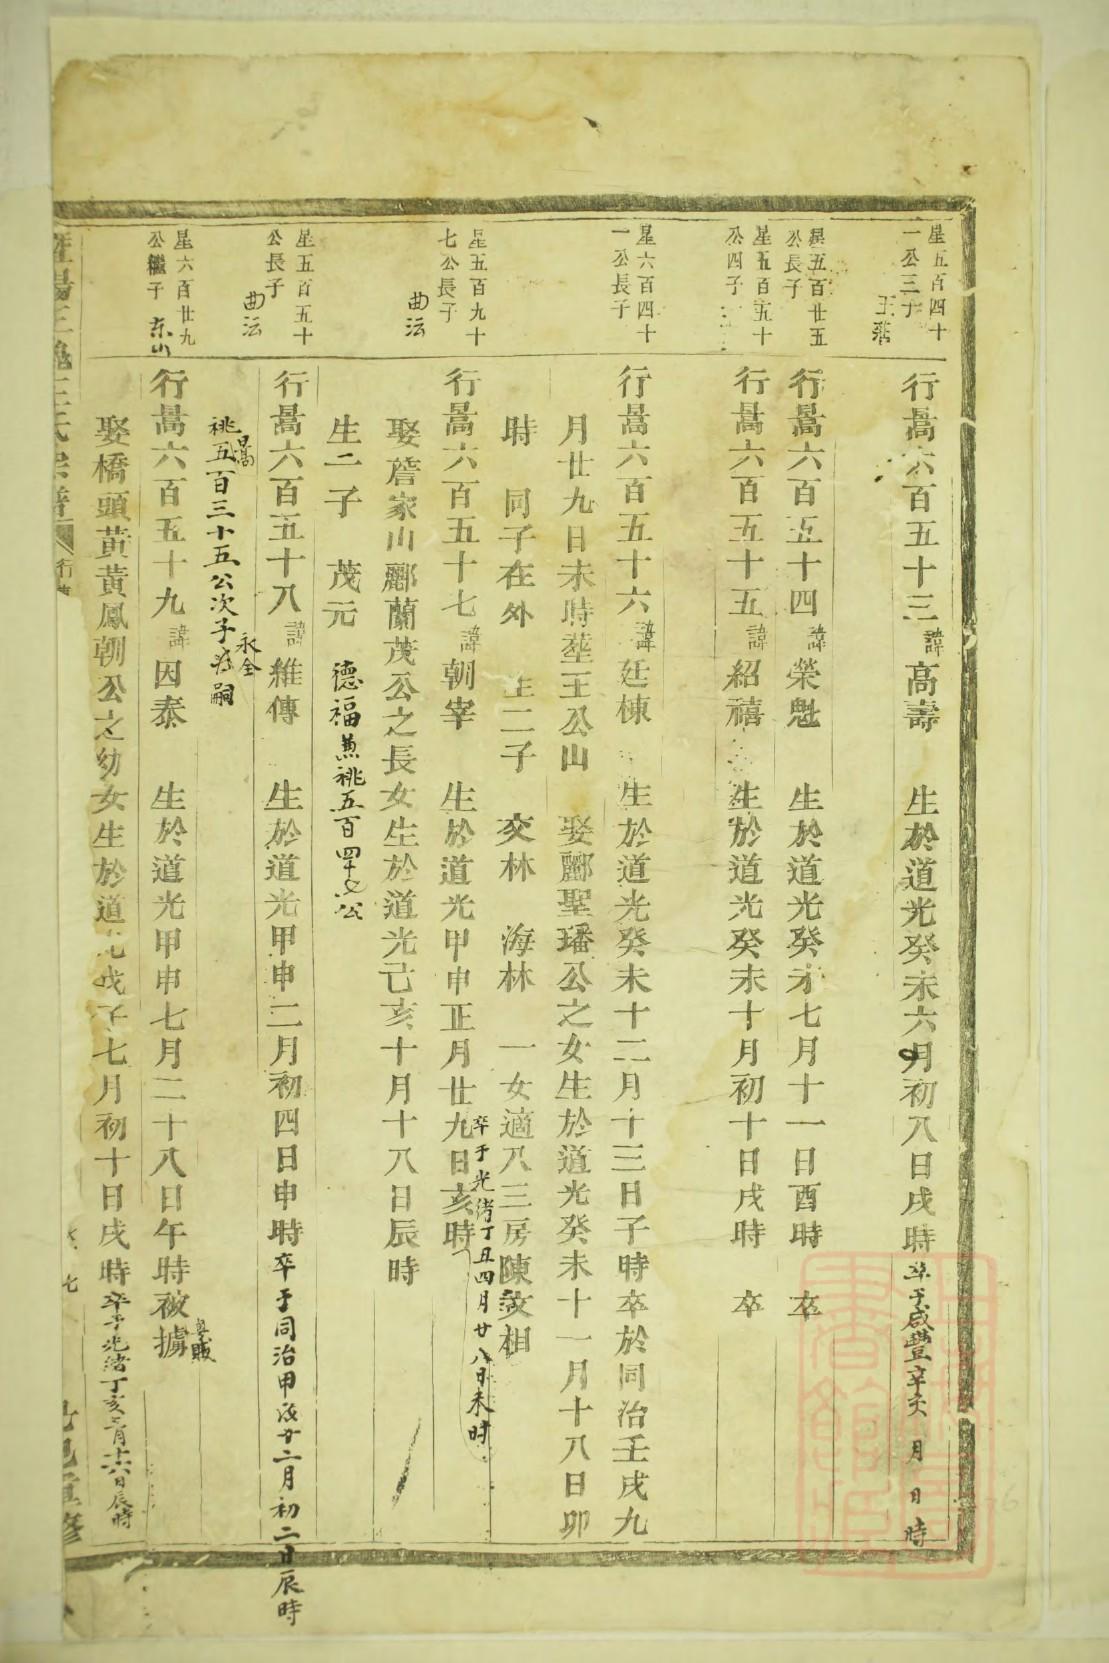 星五百四十
一公三子
王
行暠六百五十三 諱 高壽 生於道光癸未六月初八日戌時 卒于咸豐辛亥 月 日 時
星五百廿五
公長子
行暠六百五十四 諱 榮魁 生於道光癸未七月十一日酉時 卒
星五百五十
公四子
行暠六百五十五 諱 紹禧 生於道光癸未十月初十日戌時 卒
星六百四十
一公長子
行暠六百五十六 諱 廷棟 生於道光癸未十二月十三日子時卒於同治壬戌九
月廿九日未時塟王公山 娶酈聖璠公之女生於道光癸未十一月十八日卯
時 同子在外 生二子 交林 海林 一女適八三房陳文相
星五百九十
七公長子
曲沄
行暠六百五十七 諱 朝宰 生於道光甲申正月廿九日亥時
卒于光緒丁丑四月廿八日未時
娶詹家山酈蘭茂公之長女生於道光己亥十月十八日辰時
生二子 茂元 德福兼祧五百四十七公
星五百五十
公長子
曲沄
行暠六百五十八 諱 維傳 生於道光甲申二月初四日申時 卒于同治甲 十二月初二日辰時
祧暠五百三十五公次子永全為嗣
星六百廿九
公繼子
东山
行暠六百五十九 諱 因泰 生於道光甲申七月二十八日午時被擄
娶橋頭黃黃鳳朝公之幼女生於道光戊子七月初十日戌時 卒于光緒丁亥 月十六日辰時
暨陽 王氏宗譜
行
七
重修